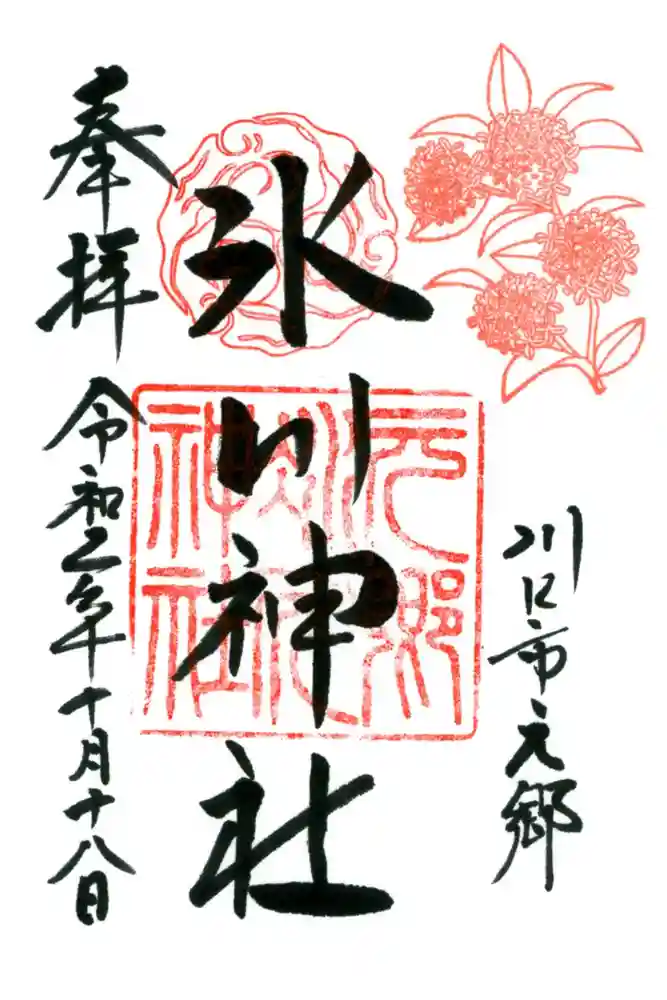 川口市元郷
氷川神社
元郷
氷川
神社
奉拝
令和二年十月十八日